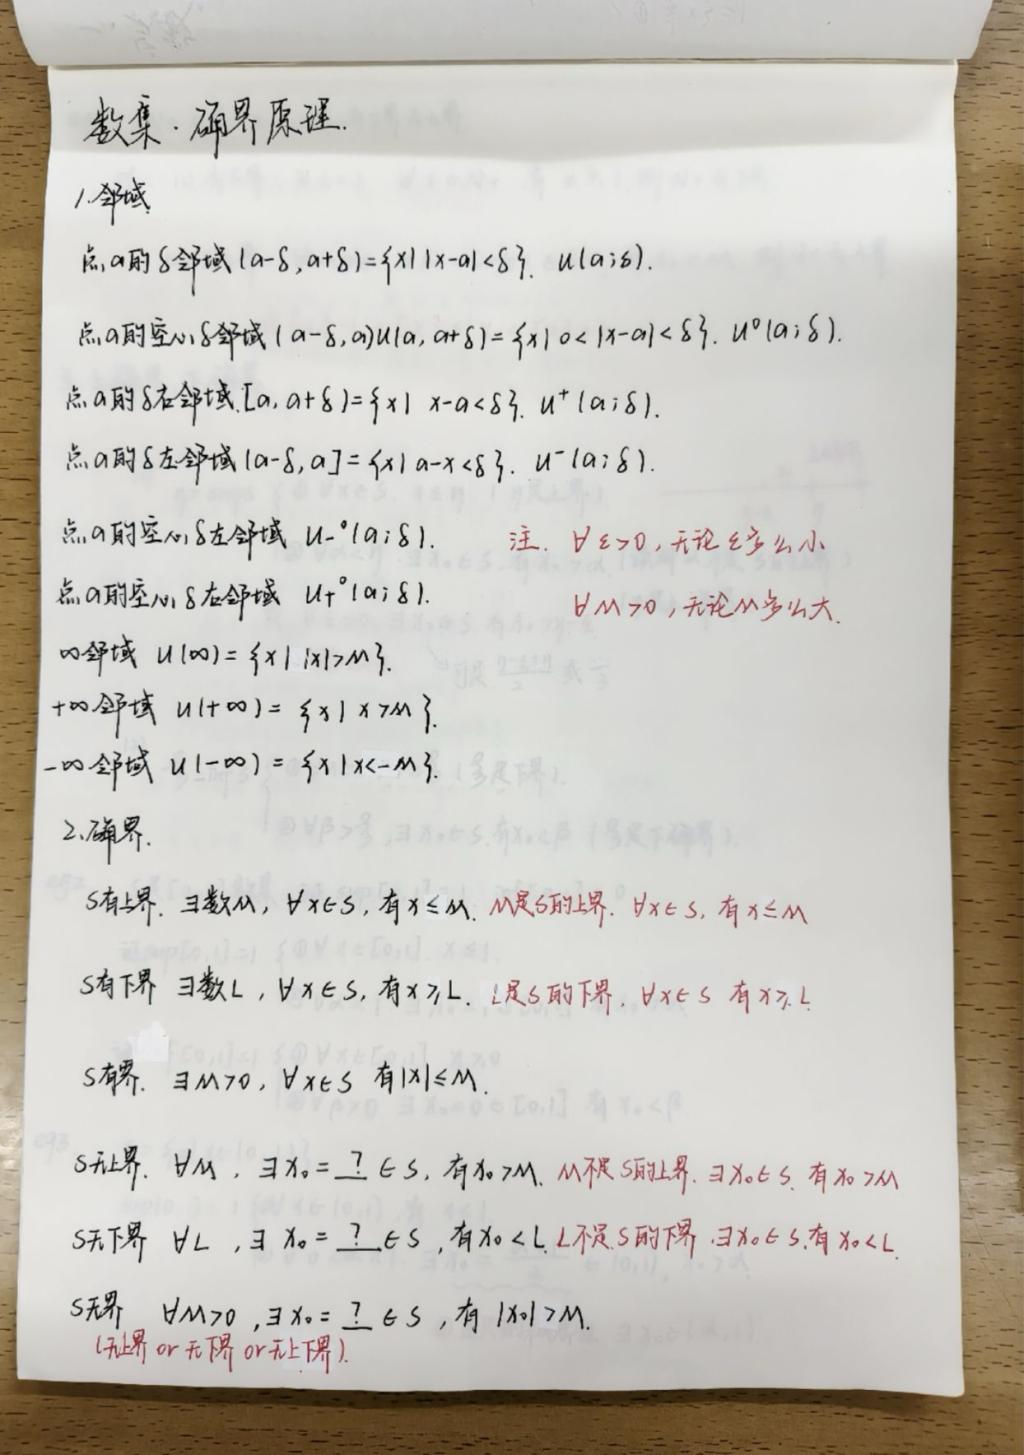 数集·确界原理.
1.邻域
点a的δ邻域(a-δ,a+δ)={x||x-a|<δ}. U(a;δ).
点a的空心δ邻域(a-δ,a)∪(a,a+δ)={x|0<|x-a|<δ}. U°(a;δ).
点a的δ右邻域.[a,a+δ)={x| x-a<δ}. U⁺(a;δ).
点a的δ左邻域(a-δ,a]={x|a-x<δ}. U⁻(a;δ).
点a的空心δ左邻域 U₋°(a;δ). 注. ∀ε>0,无论ε多么小
点a的空心δ右邻域 U₊°(a;δ). ∀M>0,无论M多么大.
∞邻域 U(∞)={x||x|>M}.
+∞邻域 U(+∞)={x|x>M}.
-∞邻域 U(-∞)={x|x<-M}.
2.确界.
S有上界. ∃数M, ∀x∈S, 有x≤M. M是S的上界. ∀x∈S, 有x≤M
S有下界 ∃数L, ∀x∈S, 有x≥L. L是S的下界. ∀x∈S 有x≥L
S有界. ∃M>0, ∀x∈S 有|x|≤M.
S无上界. ∀M, ∃x₀=?∈S, 有x₀>M. M不是S的上界. ∃x₀∈S. 有x₀>M
S无下界 ∀L, ∃x₀=?∈S, 有x₀<L. L不是S的下界.∃x₀∈S.有x₀<L.
S无界 ∀M>0,∃x₀=?∈S, 有|x₀|>M.
(无上界or无下界or无上下界).